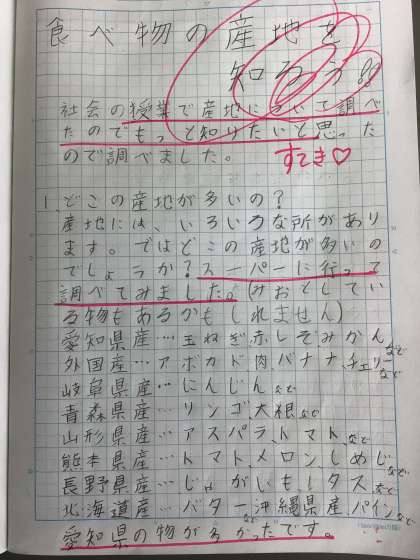 食べ物の産地を
知ろう!!
社会の授業で産地について調べ
たのでもっと知りたいと思った
ので調べました。
すてき♡
1.どこの産地が多いの？
産地には、いろいろな所があり
ます。ではどこの産地が多いの
でしょうか？スーパーに行って
調べてみました。(みおとしてい
る物もあるかもしれません)
愛知県産…玉ねぎ、赤しそ、みかんなど
外国産…アボカド、肉、バナナ、チェリーなど
岐阜県産…にんじんなど
青森県産…リンゴ、大根など
山形県産…アスパラ、トマトなど
熊本県産…トマト、メロン、しめじなど
長野県産…じゃがいも、レタスなど
北海道産…バターなど 沖縄県産、パインなど
愛知県の物が多かったです。